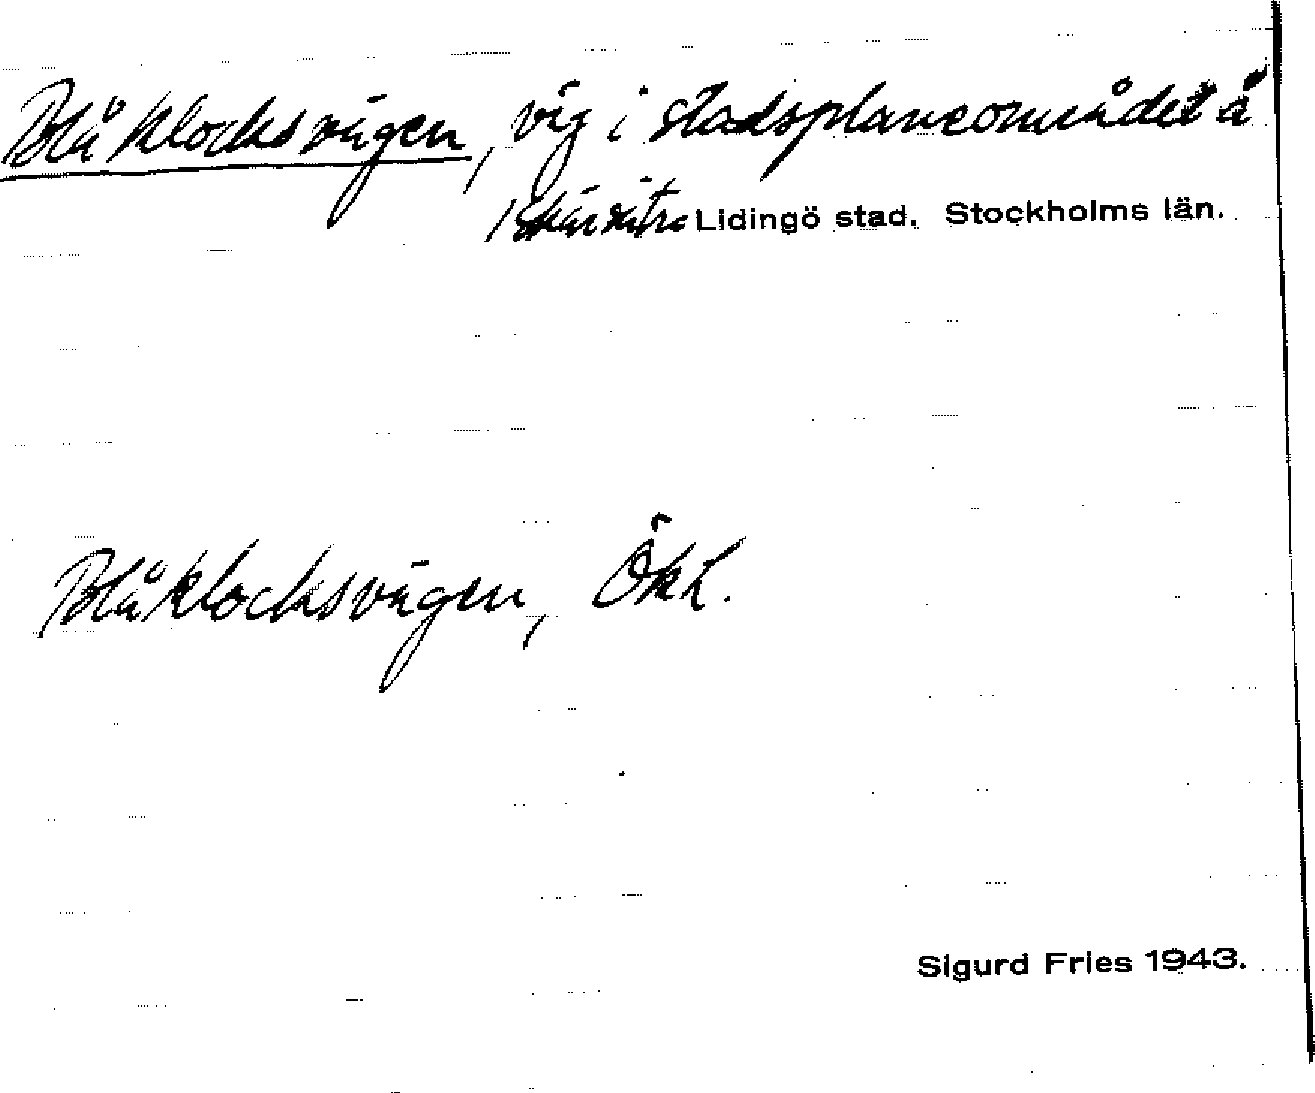 Blåklocksvägen, väg i stadsplaneområdet å
Skärsätra Lidingö stad. Stockholms län.
Blåklocksvägen, Ökk.
Sigurd Fries 1943.